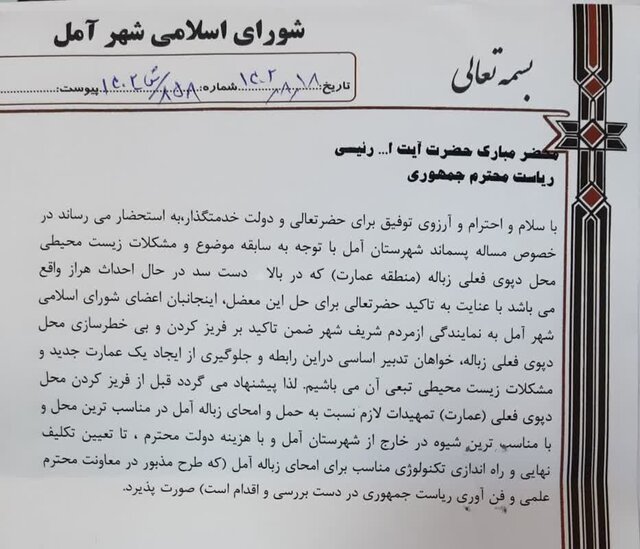 شورای اسلامی شهر آمل
بسمه تعالی
تاریخ: ۱۴۰۲/۸/۱۸ شماره: ۸۵۸/ش/۱۴۰۲ پیوست:
محضر مبارک حضرت آیت ا... رئیسی
ریاست محترم جمهوری
با سلام و احترام و آرزوی توفیق برای حضرتعالی و دولت خدمتگذار،به استحضار می رساند در
خصوص مساله پسماند شهرستان آمل با توجه به سابقه موضوع و مشکلات زیست محیطی
محل دپوی فعلی زباله (منطقه عمارت) که در بالا دست سد در حال احداث هراز واقع
می باشد با عنایت به تاکید حضرتعالی برای حل این معضل، اینجانبان اعضای شورای اسلامی
شهر آمل به نمایندگی ازمردم شریف شهر ضمن تاکید بر فریز کردن و بی خطرسازی محل
دپوی فعلی زباله، خواهان تدبیر اساسی دراین رابطه و جلوگیری از ایجاد یک عمارت جدید و
مشکلات زیست محیطی تبعی آن می باشیم. لذا پیشنهاد می گردد قبل از فریز کردن محل
دپوی فعلی (عمارت) تمهیدات لازم نسبت به حمل و امحای زباله آمل در مناسب ترین محل و
با مناسب ترین شیوه در خارج از شهرستان آمل و با هزینه دولت محترم ، تا تعیین تکلیف
نهایی و راه اندازی تکنولوژی مناسب برای امحای زباله آمل (که طرح مذبور در معاونت محترم
علمی و فن آوری ریاست جمهوری در دست بررسی و اقدام است) صورت پذیرد.